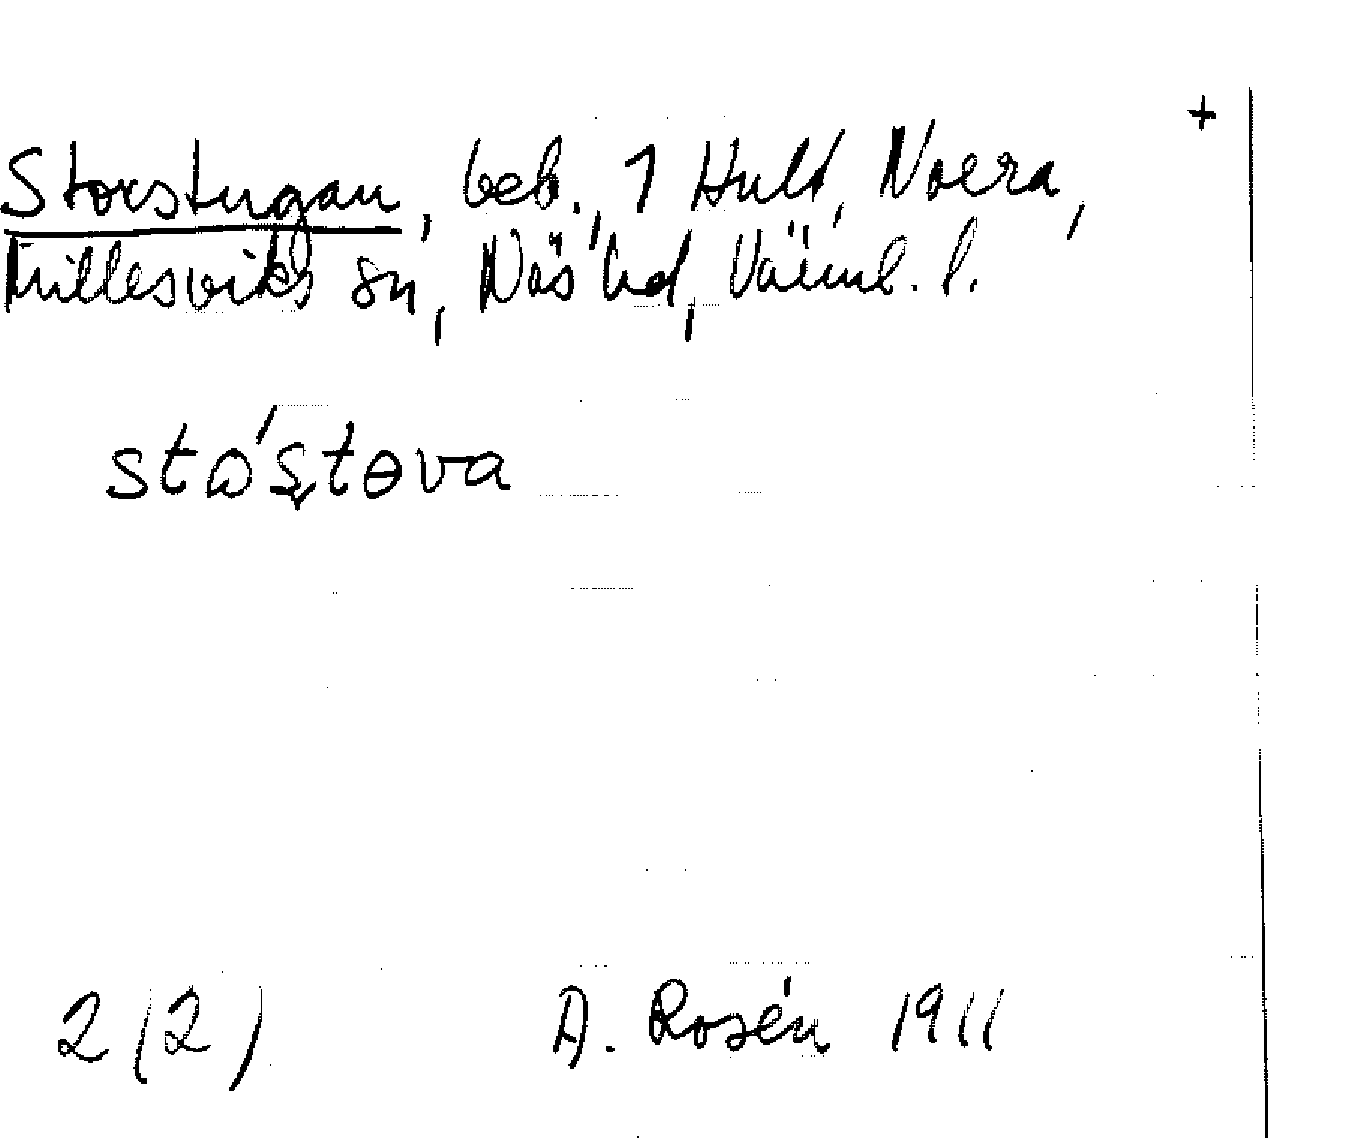 +
Storstugan, beb., 1 Hult, Norra,
Millesviks sn, Näs hd, Värml. l.
stɷ́ʂtɵva
2 (2) A. Rosén 1911